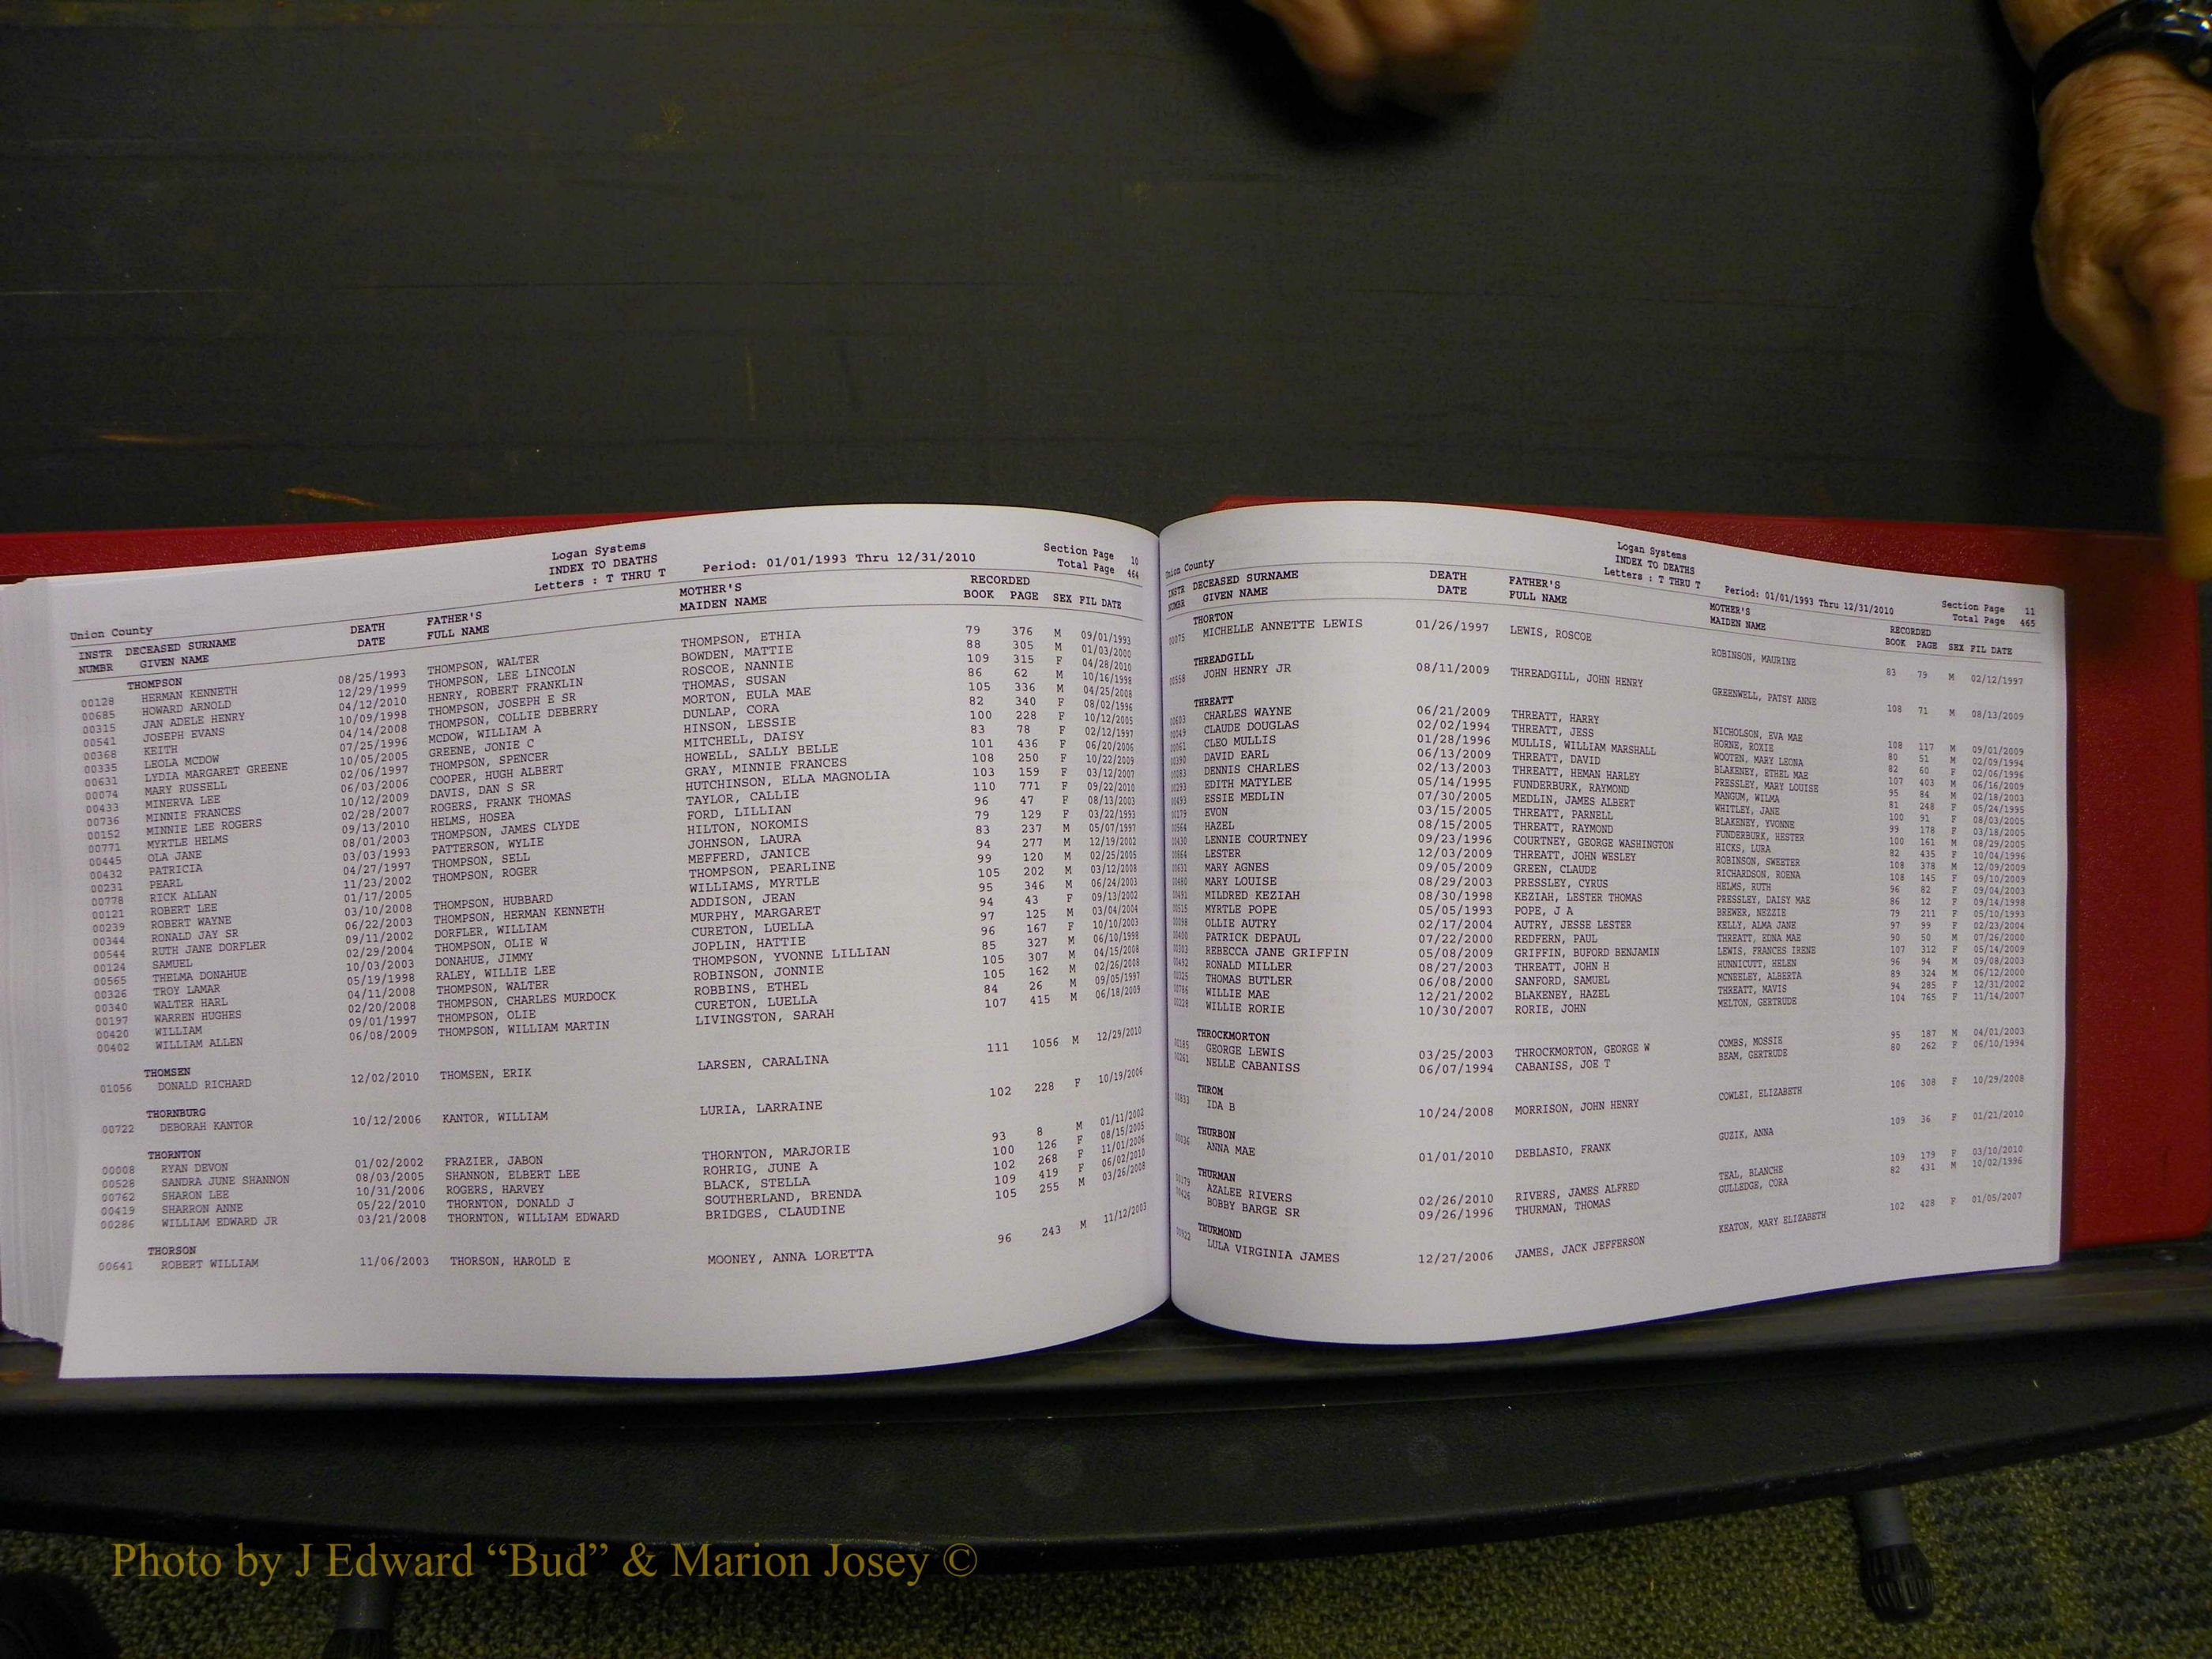 Logan Systems
INDEX TO DEATHS
Letters : T THRU T Period: 01/01/1993 Thru 12/31/2010
Section Page 10
Total Page 464
Union County
INSTR DECEASED SURNAME DEATH FATHER'S MOTHER'S RECORDED
NUMBR GIVEN NAME DATE FULL NAME MAIDEN NAME BOOK PAGE SEX FIL DATE
THOMPSON
00128 HERMAN KENNETH 08/25/1993 THOMPSON, WALTER THOMPSON, ETHIA 79 376 M 09/01/1993
00685 HOWARD ARNOLD 12/29/1999 THOMPSON, LEE LINCOLN BOWDEN, MATTIE 88 305 M 01/03/2000
00315 JAN ADELE HENRY 04/12/2010 HENRY, ROBERT FRANKLIN ROSCOE, NANNIE 109 315 F 04/28/2010
00541 JOSEPH EVANS 10/09/1998 THOMPSON, JOSEPH E SR THOMAS, SUSAN 86 62 M 10/16/1998
00368 KEITH 04/14/2008 THOMPSON, COLLIE DEBERRY MORTON, EULA MAE 105 336 M 04/25/2008
00335 LEOLA MCDOW 07/25/1996 MCDOW, WILLIAM A DUNLAP, CORA 82 340 F 08/02/1996
00631 LYDIA MARGARET GREENE 10/05/2005 GREENE, JONIE C HINSON, LESSIE 100 228 F 10/12/2005
00074 MARY RUSSELL 02/06/1997 THOMPSON, SPENCER MITCHELL, DAISY 83 78 F 02/12/1997
00433 MINERVA LEE 06/03/2006 COOPER, HUGH ALBERT HOWELL, SALLY BELLE 101 436 F 06/20/2006
00736 MINNIE FRANCES 10/12/2009 DAVIS, DAN S SR GRAY, MINNIE FRANCES 108 250 F 10/22/2009
00152 MINNIE LEE ROGERS 02/28/2007 ROGERS, FRANK THOMAS HUTCHINSON, ELLA MAGNOLIA 103 159 F 03/12/2007
00771 MYRTLE HELMS 09/13/2010 HELMS, HOSEA TAYLOR, CALLIE 110 771 F 09/22/2010
00445 OLA JANE 08/01/2003 THOMPSON, JAMES CLYDE FORD, LILLIAN 96 47 F 08/13/2003
00432 PATRICIA 03/03/1993 PATTERSON, WYLIE HILTON, NOKOMIS 79 129 F 03/22/1993
00231 PEARL 04/27/1997 THOMPSON, SELL JOHNSON, LAURA 83 237 M 05/07/1997
00778 RICK ALLAN 11/23/2002 THOMPSON, ROGER MEFFERD, JANICE 94 277 M 12/19/2002
00121 ROBERT LEE 01/17/2005 THOMPSON, PEARLINE 99 120 M 02/25/2005
00239 ROBERT WAYNE 03/10/2008 THOMPSON, HUBBARD WILLIAMS, MYRTLE 105 202 M 03/12/2008
00344 RONALD JAY SR 06/22/2003 THOMPSON, HERMAN KENNETH ADDISON, JEAN 95 346 M 06/24/2003
00544 RUTH JANE DORFLER 09/11/2002 DORFLER, WILLIAM MURPHY, MARGARET 94 43 F 09/13/2002
00124 SAMUEL 02/29/2004 THOMPSON, OLIE W CURETON, LUELLA 97 125 M 03/04/2004
00565 THELMA DONAHUE 10/03/2003 DONAHUE, JIMMY JOPLIN, HATTIE 96 167 F 10/10/2003
00326 TROY LAMAR 05/19/1998 RALEY, WILLIE LEE THOMPSON, YVONNE LILLIAN 85 327 M 06/10/1998
00340 WALTER HARL 04/11/2008 THOMPSON, WALTER ROBINSON, JONNIE 105 307 M 04/15/2008
00197 WARREN HUGHES 02/20/2008 THOMPSON, CHARLES MURDOCK ROBBINS, ETHEL 105 162 M 02/26/2008
00420 WILLIAM 09/01/1997 THOMPSON, OLIE CURETON, LUELLA 84 26 M 09/05/1997
00402 WILLIAM ALLEN 06/08/2009 THOMPSON, WILLIAM MARTIN LIVINGSTON, SARAH 107 415 M 06/18/2009
THOMSEN
01056 DONALD RICHARD 12/02/2010 THOMSEN, ERIK LARSEN, CARALINA 111 1056 M 12/29/2010
THORNBURG
00722 DEBORAH KANTOR 10/12/2006 KANTOR, WILLIAM LURIA, LARRAINE 102 228 F 10/19/2006
THORNTON
00008 RYAN DEVON 01/02/2002 FRAZIER, JABON THORNTON, MARJORIE 93 8 M 01/11/2002
00528 SANDRA JUNE SHANNON 08/03/2005 SHANNON, ELBERT LEE ROHRIG, JUNE A 100 126 F 08/15/2005
00762 SHARON LEE 10/31/2006 ROGERS, HARVEY BLACK, STELLA 102 268 F 11/01/2006
00419 SHARRON ANNE 05/22/2010 THORNTON, DONALD J SOUTHERLAND, BRENDA 109 419 F 06/02/2010
00286 WILLIAM EDWARD JR 03/21/2008 THORNTON, WILLIAM EDWARD BRIDGES, CLAUDINE 105 255 M 03/26/2008
THORSON
00641 ROBERT WILLIAM 11/06/2003 THORSON, HAROLD E MOONEY, ANNA LORETTA 96 243 M 11/12/2003
Logan Systems
INDEX TO DEATHS
Letters : T THRU T Period: 01/01/1993 Thru 12/31/2010
Section Page 11
Total Page 465
Union County
INSTR DECEASED SURNAME DEATH FATHER'S MOTHER'S RECORDED
NUMBR GIVEN NAME DATE FULL NAME MAIDEN NAME BOOK PAGE SEX FIL DATE
THORTON
00075 MICHELLE ANNETTE LEWIS 01/26/1997 LEWIS, ROSCOE ROBINSON, MAURINE 83 79 M 02/12/1997
THREADGILL
00558 JOHN HENRY JR 08/11/2009 THREADGILL, JOHN HENRY GREENWELL, PATSY ANNE 108 71 M 08/13/2009
THREATT
00603 CHARLES WAYNE 06/21/2009 THREATT, HARRY NICHOLSON, EVA MAE 108 117 M 09/01/2009
00049 CLAUDE DOUGLAS 02/02/1994 THREATT, JESS HORNE, ROXIE 80 51 M 02/09/1994
00061 CLEO MULLIS 01/28/1996 MULLIS, WILLIAM MARSHALL WOOTEN, MARY LEONA 82 60 F 02/06/1996
00390 DAVID EARL 06/13/2009 THREATT, DAVID BLAKENEY, ETHEL MAE 107 403 M 06/16/2009
00083 DENNIS CHARLES 02/13/2003 THREATT, HEMAN HARLEY PRESSLEY, MARY LOUISE 95 84 M 02/18/2003
00293 EDITH MATYLEE 05/14/1995 FUNDERBURK, RAYMOND MANGUM, WILMA 81 248 F 05/24/1995
00493 ESSIE MEDLIN 07/30/2005 MEDLIN, JAMES ALBERT WHITLEY, JANE 100 91 F 08/03/2005
00179 EVON 03/15/2005 THREATT, PARNELL BLAKENEY, YVONNE 99 178 F 03/18/2005
00564 HAZEL 08/15/2005 THREATT, RAYMOND FUNDERBURK, HESTER 100 161 M 08/29/2005
00430 LENNIE COURTNEY 09/23/1996 COURTNEY, GEORGE WASHINGTON HICKS, LURA 82 435 F 10/04/1996
00864 LESTER 12/03/2009 THREATT, JOHN WESLEY ROBINSON, SWEETER 108 378 M 12/09/2009
00631 MARY AGNES 09/05/2009 GREEN, CLAUDE RICHARDSON, ROENA 108 145 F 09/10/2009
00480 MARY LOUISE 08/29/2003 PRESSLEY, CYRUS HELMS, RUTH 96 82 F 09/04/2003
00491 MILDRED KEZIAH 08/30/1998 KEZIAH, LESTER THOMAS PRESSLEY, DAISY MAE 86 12 F 09/14/1998
00515 MYRTLE POPE 05/05/1993 POPE, J A BREWER, NEZZIE 79 211 F 05/10/1993
00098 OLLIE AUTRY 02/17/2004 AUTRY, JESSE LESTER KELLY, ALMA JANE 97 99 F 02/23/2004
00400 PATRICK DEPAUL 07/22/2000 REDFERN, PAUL THREATT, EDNA MAE 90 50 M 07/26/2000
00303 REBECCA JANE GRIFFIN 05/08/2009 GRIFFIN, BUFORD BENJAMIN LEWIS, FRANCES IRENE 107 312 F 05/14/2009
00492 RONALD MILLER 08/27/2003 THREATT, JOHN H HUNNICUTT, HELEN 96 94 M 09/08/2003
00325 THOMAS BUTLER 06/08/2000 SANFORD, SAMUEL MCNEELEY, ALBERTA 89 324 M 06/12/2000
00786 WILLIE MAE 12/21/2002 BLAKENEY, HAZEL THREATT, MAVIS 94 285 F 12/31/2002
00228 WILLIE RORIE 10/30/2007 RORIE, JOHN MELTON, GERTRUDE 104 765 F 11/14/2007
THROCKMORTON
00185 GEORGE LEWIS 03/25/2003 THROCKMORTON, GEORGE W COMBS, MOSSIE 95 187 M 04/01/2003
00261 NELLE CABANISS 06/07/1994 CABANISS, JOE T BEAM, GERTRUDE 80 262 F 06/10/1994
THROM
00833 IDA B 10/24/2008 MORRISON, JOHN HENRY COWLEI, ELIZABETH 106 308 F 10/29/2008
THURBON
00036 ANNA MAE 01/01/2010 DEBLASIO, FRANK GUZIK, ANNA 109 36 F 01/21/2010
THURMAN
00179 AZALEE RIVERS 02/26/2010 RIVERS, JAMES ALFRED TEAL, BLANCHE 109 179 F 03/10/2010
00426 BOBBY BARGE SR 09/26/1996 THURMAN, THOMAS GULLEDGE, CORA 82 431 M 10/02/1996
THURMOND
00922 LULA VIRGINIA JAMES 12/27/2006 JAMES, JACK JEFFERSON KEATON, MARY ELIZABETH 102 428 F 01/05/2007
Photo by J Edward “Bud” & Marion Josey ©